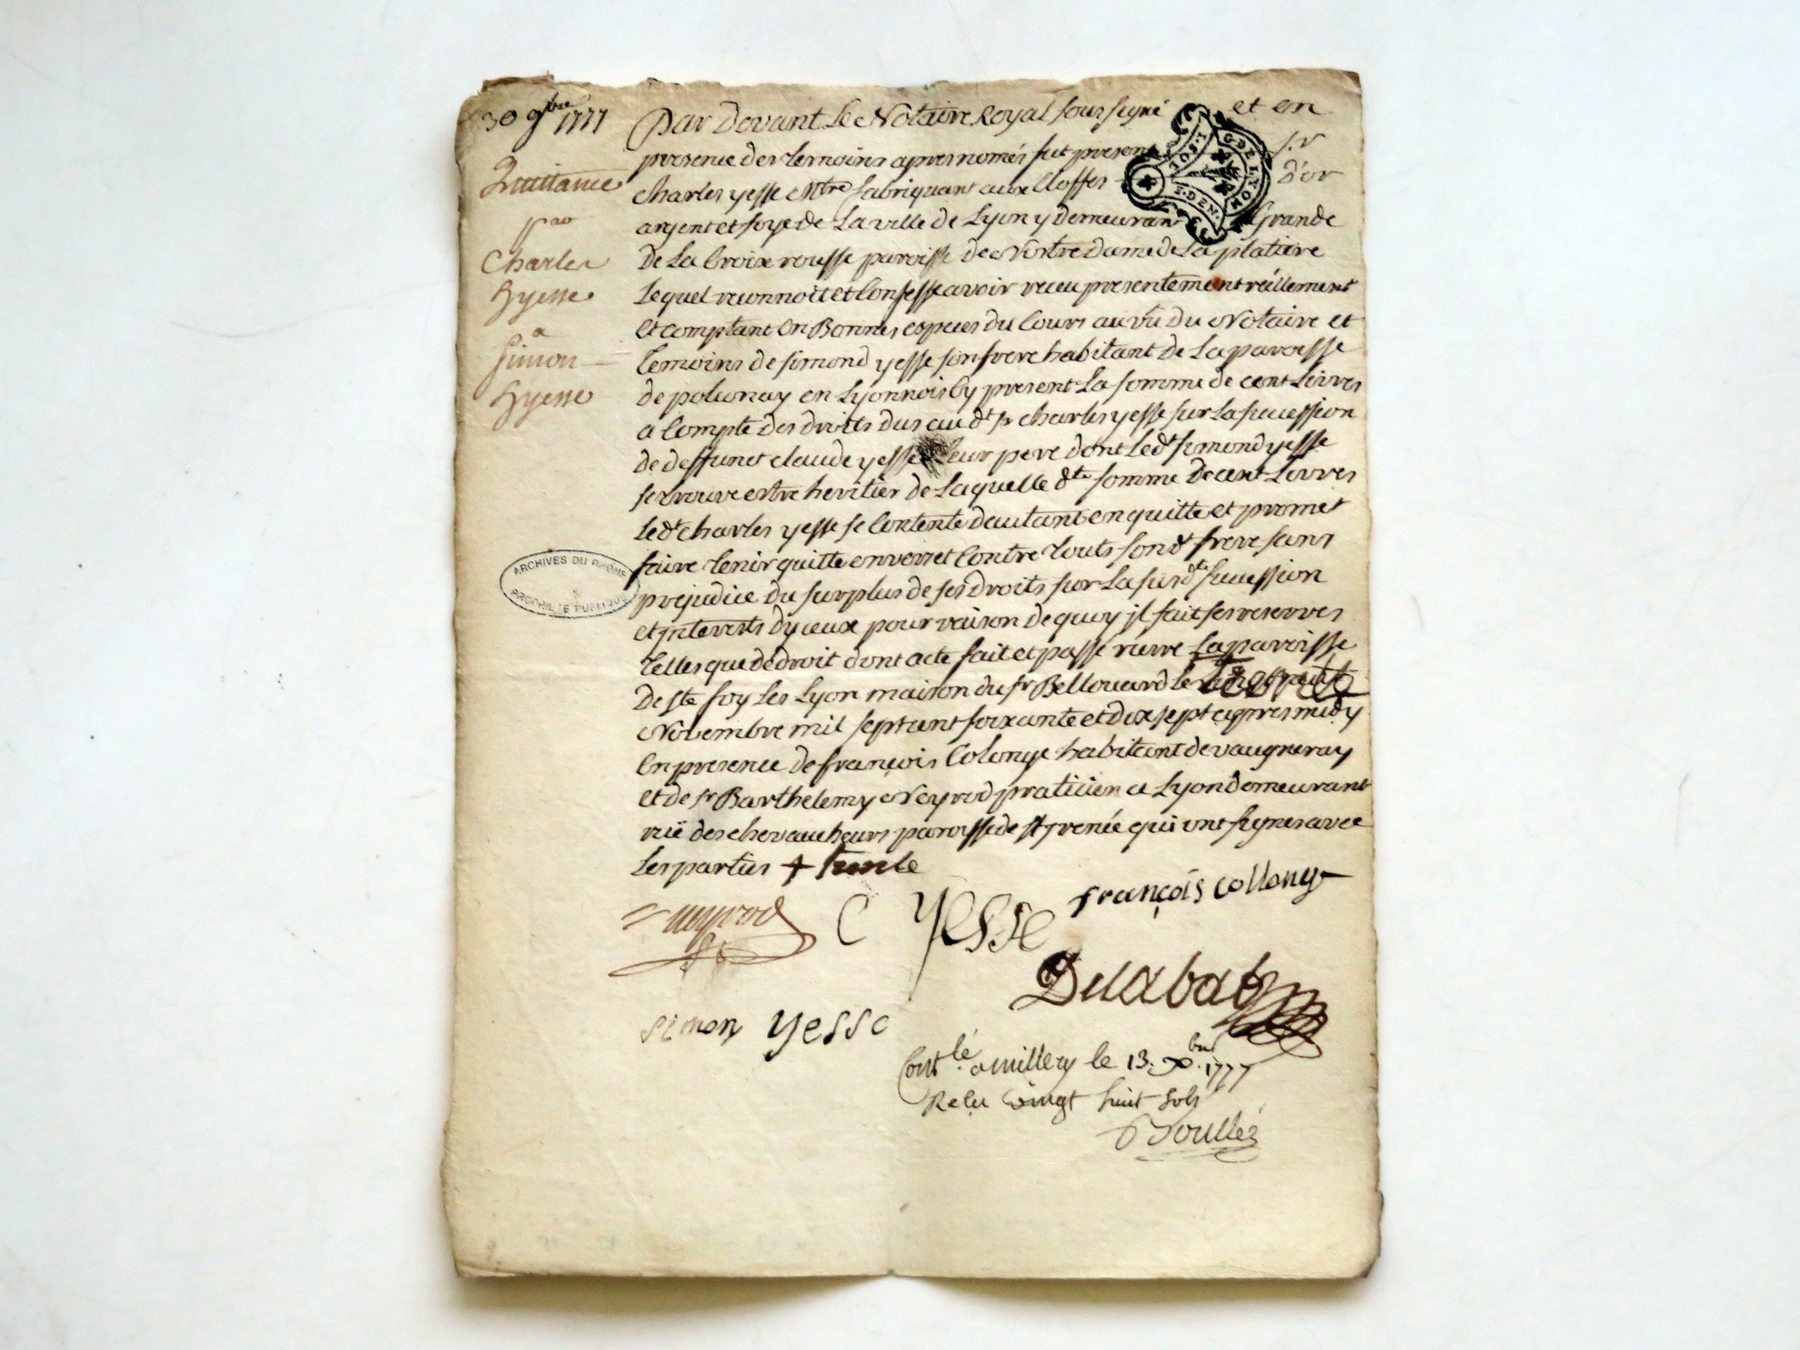 30 9bre 1777
Quittance
par
Charles
Hyesse
a
Simon
Hyesse
Par Devant Le Notaire Royal soussigné et en
presence des temoins apres només fut present sr
Charles yesse Mtre fabriquant aux Etoffes d'or
argent et soye de La ville de Lyon y demeurant Grande
De La Croix rousse paroisse de Nostre Dame de La platiere
Lequel reconnoit et Confesse avoir receu presentement réellement
et comptant En Bonnes especes du Cours au vû du Notaire et
temoins de simond yesse son frere habitant de La paroisse
de polionay en Lyonnois Cy present La somme de cent Livres
a Compte des droits dus au dt sr charles yesse sur La succession
de deffunct claude yesse Leur pere dont Ledt simond yesse
se trouve estre heritier de Laquelle dte somme De cent Livres
Ledt charles yesse se Contente d'autant en quitte et promet
faire tenir quitte envers et Contre touts sondt frere sans
prejudice du surplus de ses droits sur La susdte succession
et interests d'yceux pour raison de quoy jl fait ses reserves
telles que de droit dont acte fait et passé riere La paroisse
De ste foy Les Lyon maison du sr Bellouard le
Novembre mil sept cent soixante et dix sept apres midy
En presence de françois Colonge habitant de vaugneray
et de sr Barthelemy Neyrod praticien a Lyon demeurant
ruë des chevaucheurs paroisse de st jrenée qui ont signes avec
Les parties + trente
neyrod
C Yesse
françois collonge
simon yesse
Delabat
Contlé a millery le 13 Xbre 1777
Reçu vingt huit sols
Boullés
ARCHIVES DU RHÔNE
PROPRIÉTÉ PUBLIQUE
G. DE LYON
2. DEN.